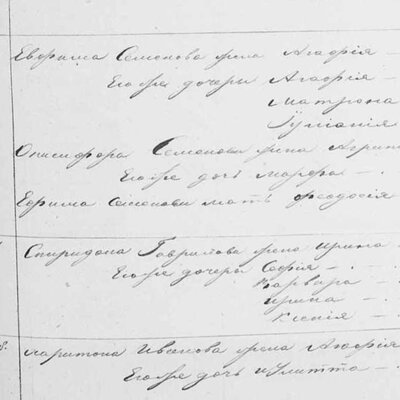 Евфима Семенова жена Агафія —
Его же дочери Агафія —
Матрона
Іуліанія
Онисифора Семенова жена Агрип
Его же дочь Марфа — .
Ефрима Семенова мать Феодосія
Спиридона Гаврилова жена Ирина —
Его же дочери Софія — .
Варвара — .
Ирина — .
Ксенія — .
8. Харитона Иванова жена Агафія
Его же дочь Иулитта — .